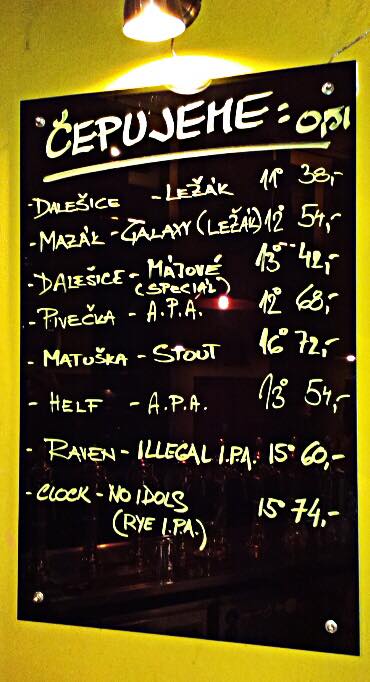 ČEPUJEME:
-DALEŠICE -LEŽÁK 11° 38,-
-MAZÁK-GALAXY(LEŽÁK)12° 54,-
-DALEŠICE-MÁJOVÉ 13° 42,-
(SPECIÁL)
-PIVEČKA-A.P.A. 12° 68,-
-MATUŠKA-STOUT 16° 72,-
-HELF -A.P.A. 13° 54,-
-RAVEN-ILLEGAL I.P.A. 15° 60,-
-CLOCK-NO IDOLS
(RYE I.P.A.) 15° 74,-